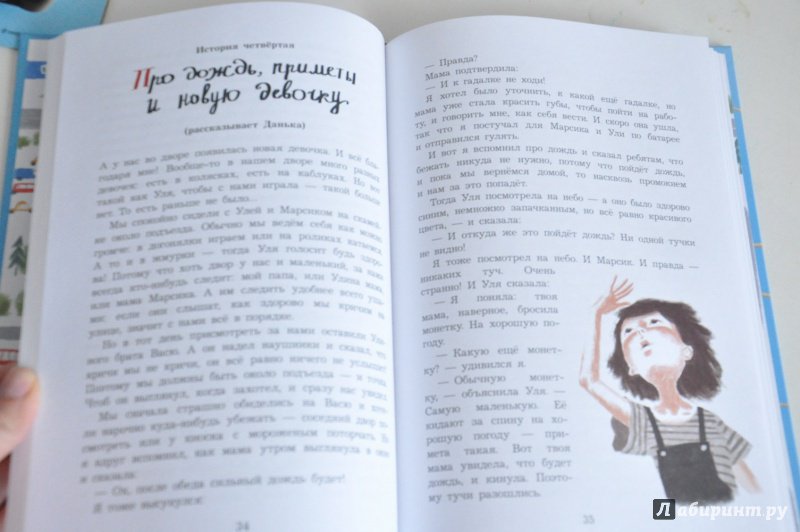 История четвёртая
Про дождь, приметы
и новую девочку
(рассказывает Данька)
А у нас во дворе появилась новая девочка. И всё бла-
годаря мне! Вообще-то в нашем дворе много разных
девочек: есть в колясках, есть на каблуках. Но вот
такой как Уля, чтобы с нами играла — такой больше
нет. То есть раньше не было...
Мы спокойно сидели с Улей и Марсиком на скамей-
ке около подъезда. Обычно мы ведём себя как можно
громче: в догонялки играем или на роликах катаемся.
А то и в жмурки — тогда Уля голосит будь здоро-
ва! Потому что хоть двор у нас и маленький, за нами
всегда кто-нибудь следит: мой папа, или Улина мама,
или мама Марсика. А им следить удобнее всего уша-
ми: если они слышат, как здорово мы кричим на
улице, значит с нами всё в порядке.
Но в тот день присмотреть за нами оставили Ули-
ного брата Васю. А он надел наушники и сказал, что
кричи мы не кричи, он всё равно ничего не услышит.
Поэтому мы должны быть около подъезда — и точка.
Чтоб он выглянул, когда захотел, и сразу нас увидел.
Мы сначала страшно обиделись на Васю и хоте-
ли нарочно куда-нибудь убежать — соседний двор по-
смотреть или у киоска с мороженым поторчать. Но
я вдруг вспомнил, как мама утром выглянула в окно
и сказала:
— Ох, после обеда сильный дождь будет!
Я тоже высунулся:
34
— Правда?
Мама подтвердила:
— И к гадалке не ходи!
Я хотел было уточнить, к какой ещё гадалке, но
мама уже стала красить губы, чтобы пойти на рабо-
ту, и говорить мне, как себя вести. И скоро она ушла,
так что я постучал для Марсика и Ули по батарее
и отправился гулять.
И вот я вспомнил про дождь и сказал ребятам, что
бежать никуда не нужно, потому что пойдёт дождь,
и пока мы вернёмся домой, то насквозь промокнем
и нам за это попадёт.
Тогда Уля посмотрела на небо — а оно было здорово
синим, немножко запачканным, но всё равно красивого
цвета, — и сказала:
— И откуда же это пойдёт дождь? Ни одной тучки
не видно!
Я тоже посмотрел на небо. И Марсик. И правда —
никаких туч. Очень
странно! И Уля сказала:
— Я поняла: твоя
мама, наверное, бросила
монетку. На хорошую по-
году.
— Какую ещё монет-
ку? — удивился я.
— Обычную монет-
ку, — объяснила Уля. —
Самую маленькую. Её
кидают за спину на хо-
рошую погоду — при-
мета такая. Вот твоя
мама увидела, что будет
дождь, и кинула. Поэто-
му тучи разошлись.
35
Лабиринт.ру